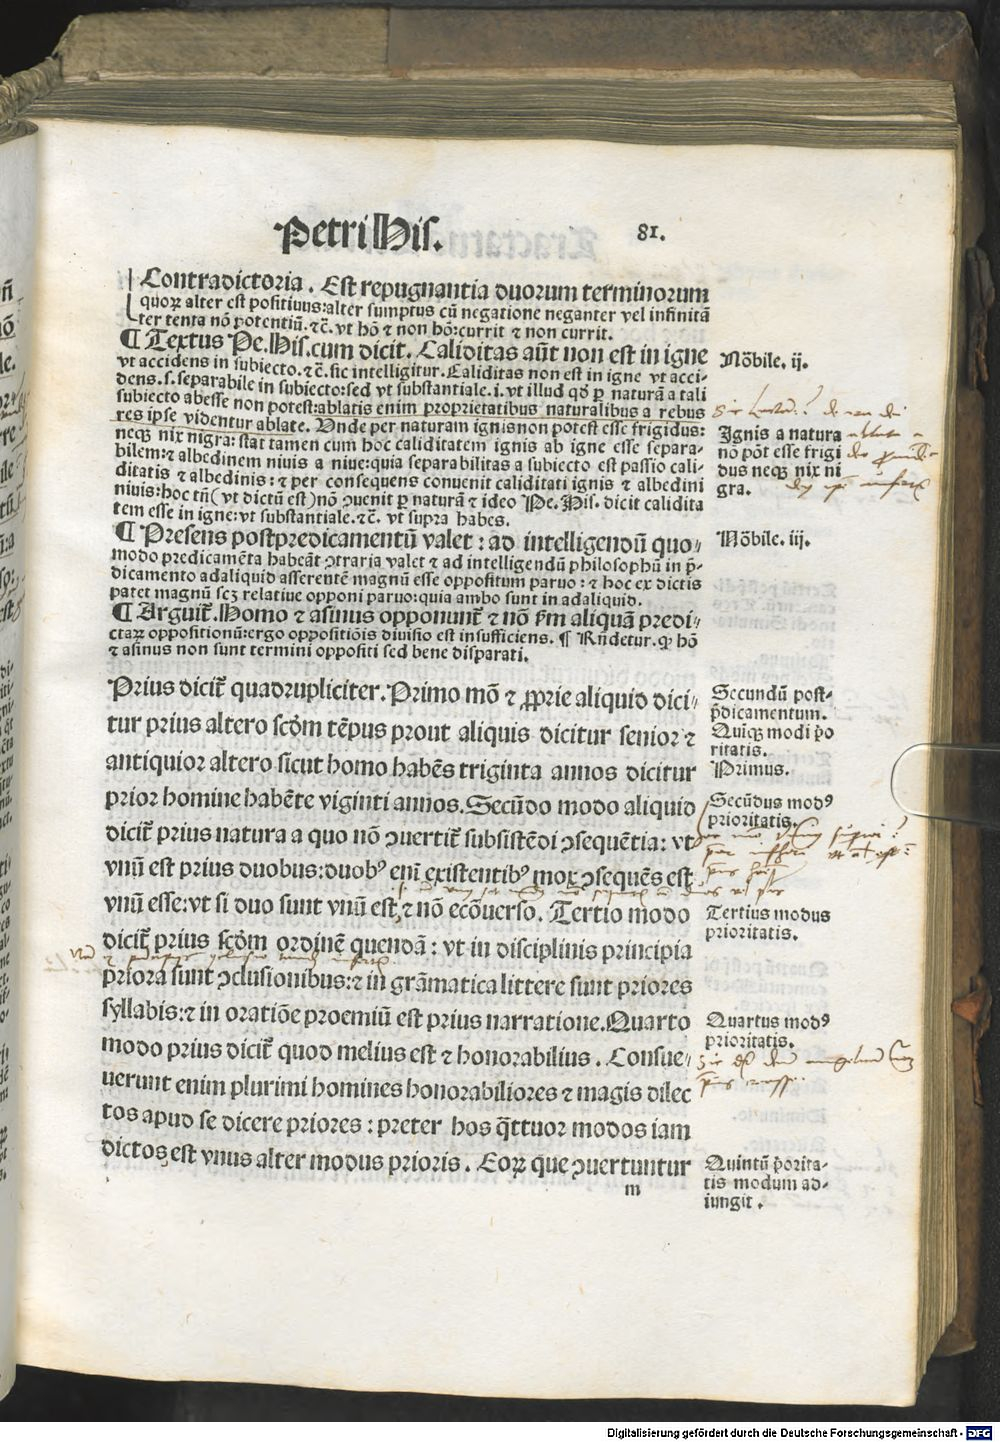 Petri His.
81.
Contradictoria. Est repugnantia duorum terminorum
quorꝝ alter est positiuus: alter sumptus cū negatione neganter vel infinitā
ter tenta nō potentiū. ⁊c̄. vt hō ⁊ non hō: currit ⁊ non currit.
¶ Textus Pe. His. cum dicit. Caliditas aūt non est in igne
vt accidens in subiecto. ⁊c̄. sic intelligitur. Caliditas non est in igne vt acci-
dens. s. separabile in subiecto: sed vt substantiale. i. vt illud qd̄ ꝑ naturā a tali
subiecto abesse non potest: ablatis enim proprietatibus naturalibus a rebus
res ipse videntur ablate. Unde per naturam ignis non potest esse frigidus:
neqꝫ nix nigra: stat tamen cum hoc caliditatem ignis ab igne esse separa-
bilem: ⁊ albedinem niuis a niue: quia separabilitas a subiecto est passio cali-
ditatis ⁊ albedinis: ⁊ per consequens conuenit caliditati ignis ⁊ albedini
niuis: hoc tn̄ (vt dictū est) nō ꝯuenit ꝑ naturā ⁊ ideo Pe. His. dicit calidita
tem esse in igne: vt substantiale. ⁊c̄. vt supra habes.
¶ Presens postpredicamentū valet: ad intelligendū quo-
modo predicamēta habeāt ꝯtraria valet ⁊ ad intelligendū philosophū in p̄-
dicamento ad aliquid asserentē magnū esse oppositum paruo: ⁊ hoc ex dictis
patet magnū scꝫ relatiue opponi paruo: quia ambo sunt in ad aliquid.
¶ Arguit̄. Homo ⁊ asinus opponunt̄ ⁊ nō ẜm aliquā predi-
ctarꝝ oppositionū: ergo oppositiōis diuisio est insufficiens. ¶ Rn̄detur. ꝙ hō
⁊ asinus non sunt termini oppositi sed bene disparati.
Prius dicit̄ quadrupliciter. Primo mō ⁊ ꝓprie aliquid dici-
tur prius altero scd̄m tēpus prout aliquis dicitur senior ⁊
antiquior altero sicut homo habēs triginta annos dicitur
prior homine habēte viginti annos. Secūdo modo aliquid
dicit̄ prius natura a quo nō ꝯuertit̄ subsistēdi ꝯsequētia: vt
vnū est prius duobus: duobꝰ enī existentibꝰ mox ꝯsequēs est
vnū esse: vt si duo sunt vnū est, ⁊ nō ecōuerso. Tertio modo
dicit̄ prius scd̄m ordinē quendā: vt in disciplinis principia
priora sunt ꝯclusionibus: ⁊ in grāmatica littere sunt priores
syllabis: ⁊ in oratiōe proemiū est prius narratione. Quarto
modo prius dicit̄ quod melius est ⁊ honorabilius. Consue-
uerunt enim plurimi homines honorabiliores ⁊ magis dilec
tos apud se dicere priores: preter hos q̄ttuor modos iam
dictos est vnus alter modus prioris. Eorꝝ que ꝯuertuntur
m
Nōbile. ij.
Ignis a natura
nō pōt esse frigi
dus neqꝫ nix ni
gra.
Nōbile. iij.
Secundū post-
p̄dicamentum.
Quīqꝫ modi p̄o
ritatis.
Primus.
Secūdus modꝰ
prioritatis.
Tertius modus
prioritatis.
Quartus modꝰ
prioritatis.
Quintū p̄orita-
tis modum ad-
iungit.
Digitalisierung gefördert durch die Deutsche Forschungsgemeinschaft - DFG